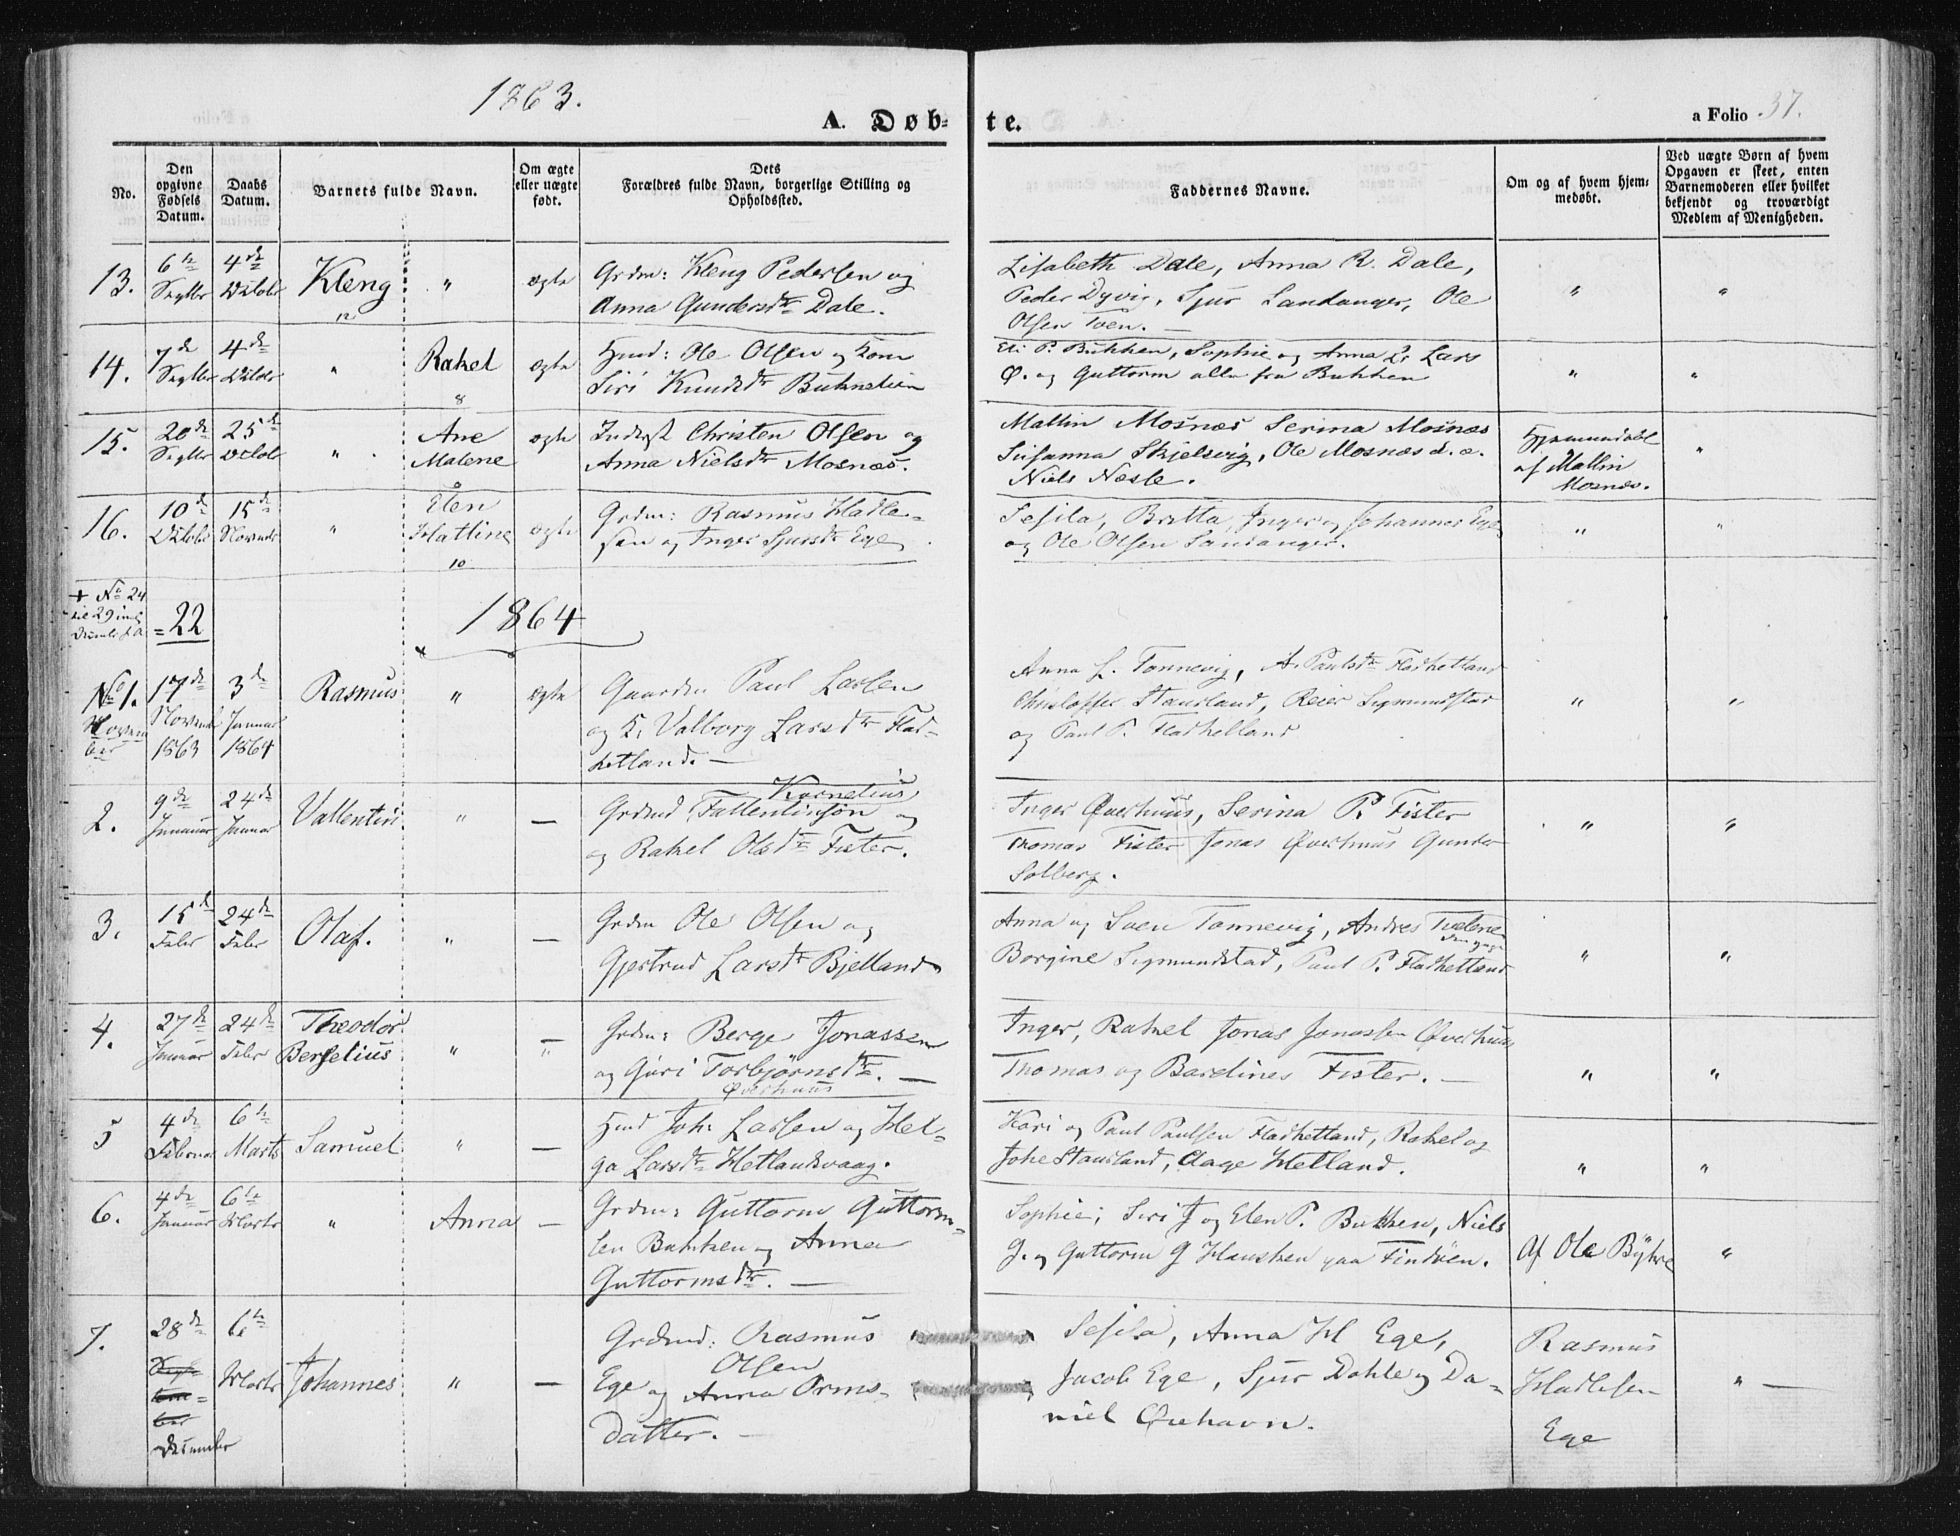 1863.
A. Døb-te.
a Folio 37.
No.
Den opgivne Fødsels Datum.
Daabs Datum.
Barnets fulde Navn.
Om ægte eller uægte født.
Dets Forældres fulde Navn, borgerlige Stilling og Opholdssted.
Faddernes Navne.
Om og af hvem hjemmedøbt.
Ved uægte Børn af hvem Opgaven er skeet, enten Barnemoderen eller hvilket bekjendt og troværdigt Medlem af Menigheden.
13. 6te Septbr 4de Octobr Kleng " ægte Grdm: Kleng Pedersen og
Anna Gundersdtr Dale.
Lisabeth Dale, Anna R. Dale,
Peder Dyvig, Sjur Landanger, Ole
Olsen Tven. —
" "
12
14. 7de Septbr 4de Octobr " Rakel ægte Hmd: Ole Olsen og Kone
Siri Knudsdtr Buknetein
Eli P. Bukken, Sophie og Anna L. Lars
Ø. og Guttorm alle fra Bukken
" "
8
15. 20de Septbr 25de Octob " Ane
Malene
ægte Inderst Christen Olsen og
Anna Nielsdtr Mosnæs.
Mallin Mosnæs Serina Mosnæs
Susanna Skjelsvig, Ole Mosnæs d. æ.
Niels Næsle.
Hjemmedøbt
af Mallin
Mosnæs.
"
16. 10de Octobr 15de Novembr " Elen
Hattine
ægte Grdm: Rasmus Hadle-
sen og Inger Sjursdtr Ege
Sesila, Britta, Inger og Johannes Ege
og Ole Olsen Landanger.
" "
10
+ No 24
til 29 incl
= 22
1864
No 1.
Novem
ber
17de
Novembr
1863
3de
Januar
1864
Rasmus " ægte Gaardm. Paul Larsen
og K. Valborg Larsdtr Flad-
hetland. —
Anna L. Tonnevig, A. Paulsdtr Fladhetland
Christoffer Stausland, Reier Sigmundstad
og Paul P. Fladhetland
" "
2. 9de Januar 24de Januar Vallentin " — Kornelius
Grdmd Fallentinsøn og
og Rakel Olsdtr Fister.
Inger Øverhuus, Serina P. Fister
Thomas Fister Jonas Øverhuus Gunder
Solberg.
" "
3. 15de Febr 24de Febr Olaf. " — Grdm Ole Olsen og
Gjertrud Larsdtr Bjelland
Anna og Sven Tonnevig, Andres Tvelene
den yngr
Borgine Sigmundstad, Paul P. Fladhetland
" "
4. 27de Januar 24de Febr Theodor
Berselius
" — Grdm: Berge Jonassen
og Guri Torbjørnsdtr. —
Øverhuus
Inger, Rakel Jonas Jonassen Øverhuus
Thomas og Bardines Fister. —
" "
5 4de Februar 6te Marts Samuel " — Hmd Joh: Larsen og Hel-
ga Larsdtr Hetlandsvaag.
Kari og Paul Paulsen Fladhetland, Rakel og
Johe Stausland, Aage Hetland.
" "
6. 4de Januar 6te Marts " Anna — Grdm: Guttorm Guttorm-
sen Bukken og Anna
Guttormsdtr. —
Sophie, Siri J og Elen P. Bukken, Niels
G. og Guttorm G Hausken paa Findöen.
Af Ole Böhre
"
7. 28de
Septe
tem-
ber
December
6te
Marts
Johannes " — Grdmd: Rasmus
Olsen
Ege og Anna Orms-
datter. —
Sesila, Anna H Ege,
Jacob Ege, Sjur Dahle og Da-
niel Øvehavn.
Rasmus
Hadlesen
Ege
" —